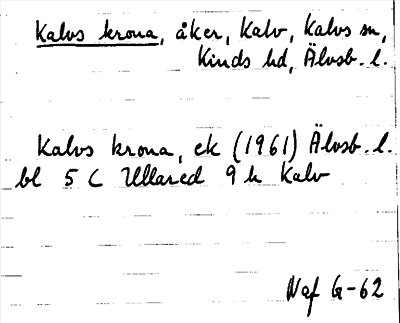 Kalvs krona, åker, Kalv, Kalvs sn,
Kinds hd, Älvsb. l.
Kalvs krona, ek (1961) Älvsb. l.
bl 5 C Ullared 9 h Kalv
Naf G-62